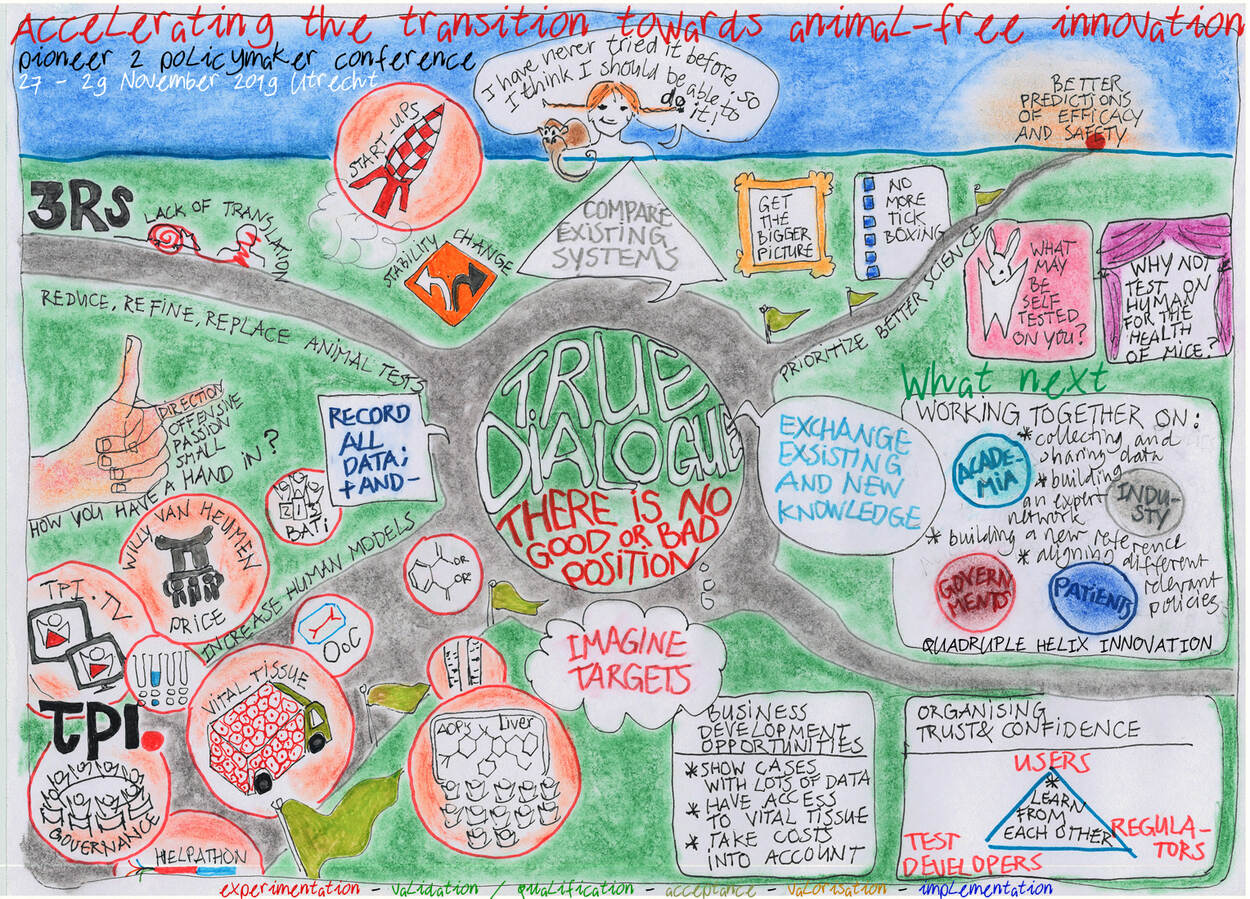 Accelerating the transition towards animal-free innovation
pioneer 2 policymaker conference
27 - 29 November 2019 Utrecht
I have never tried it before, so
I think I should be able to
do it!
BETTER
PREDICTIONS
OF EFFICACY
AND SAFETY
START UPS
3RS
LACK OF TRANSLATION
STABILITY CHANGE
COMPARE
EXISTING
SYSTEMS
GET
THE
BIGGER
PICTURE
NO
MORE
TICK
BOXING
WHAT
MAY
BE
SELF
TESTED
ON YOU?
WHY NOT
TEST ON
HUMAN
FOR THE
HEALTH
OF MICE?
REDUCE, REFINE, REPLACE ANIMAL TESTS
PRIORITIZE BETTER SCIENCE
TRUE
DIALOGUE
THERE IS NO
GOOD OR BAD
POSITION
DIRECTION
OFFENSIVE
PASSION
SMALL
HOW YOU HAVE A HAND IN?
RECORD
ALL
DATA;
+ AND -
EXCHANGE
EXSISTING
AND NEW
KNOWLEDGE
What next
WORKING TOGETHER ON:
* collecting and
sharing data
* building
an expert
network
* building a new reference
* aligning different
relevant
policies
ACADE-
MIA
INDU-
STY
GOVERN
MENTS
PATIENTS
QUADRUPLE HELIX INNOVATION
213
BATi
WILLY VAN HEUMEN
PRICE
INCREASE HUMAN MODELS
OR
OR
TPI.TV
OOC
VITAL TISSUE
TPI.
GOVERNANCE
HELPATHON
AOPs
Liver
IMAGINE
TARGETS
BUSINESS
DEVELOPMENT
OPPORTUNITIES
* SHOW CASES
WITH LOTS OF DATA
* HAVE ACCESS
TO VITAL TISSUE
* TAKE COSTS
INTO ACCOUNT
ORGANISING
TRUST & CONFIDENCE
USERS
* LEARN
FROM
EACH OTHER
TEST
DEVELOPERS
REGULA-
TORS
experimentation - validation / qualification - acceptance - valorisation - implementation